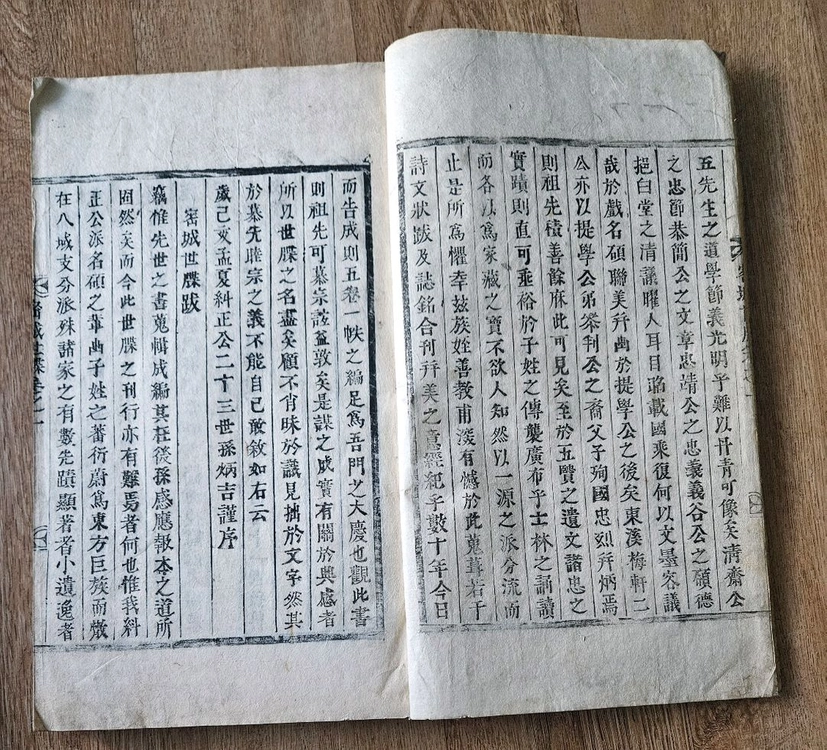 五先生之道學節義光明乎難以丹靑可像矣淸齋公
之忠節恭簡公之文章忠靖公之忠義義谷公之碩德
挹白堂之淸議曜人耳目昭載國乘復何以文墨容議
哉於戲名碩聯美幷幽於提學公之後矣東溪梅軒二
公亦以提學公弟叅判公之裔父子殉國忠烈幷炳焉
則祖先積善餘庥此可見矣至於五賢之遺文諸忠之
實蹟則直可垂裕於子姓之傳襲廣布乎士林之誦讀
而各以爲家藏之寶不欲人知然以一源之派分流而
止是所爲懼幸玆族姪善敎甫深有憾於此蒐葺若干
詩文狀跋及誌銘合刊幷美之意經紀乎數十年今日
而告成則五卷一帙之編足爲吾門之大慶也觀此書
則祖先可慕宗誼益敦矣是謀之成實有關於興感者
所以世牒之名盡矣顧不肖昧於識見拙於文字然其
於慕先睦宗之義不能自已敢敘如右云
歲己亥孟夏糾正公二十三世孫炳吉謹序
密城世牒跋
竊惟先世之書蒐輯成編其在後孫感應報本之道所
固然矣而今此世牒之刊行亦有難焉者何也惟我糾
正公派名碩之輩出子姓之蕃衍蔚爲東方巨族而散
在八城支分派殊諸家之有數先蹟顯著者小遺逸者
密城世牒卷之一